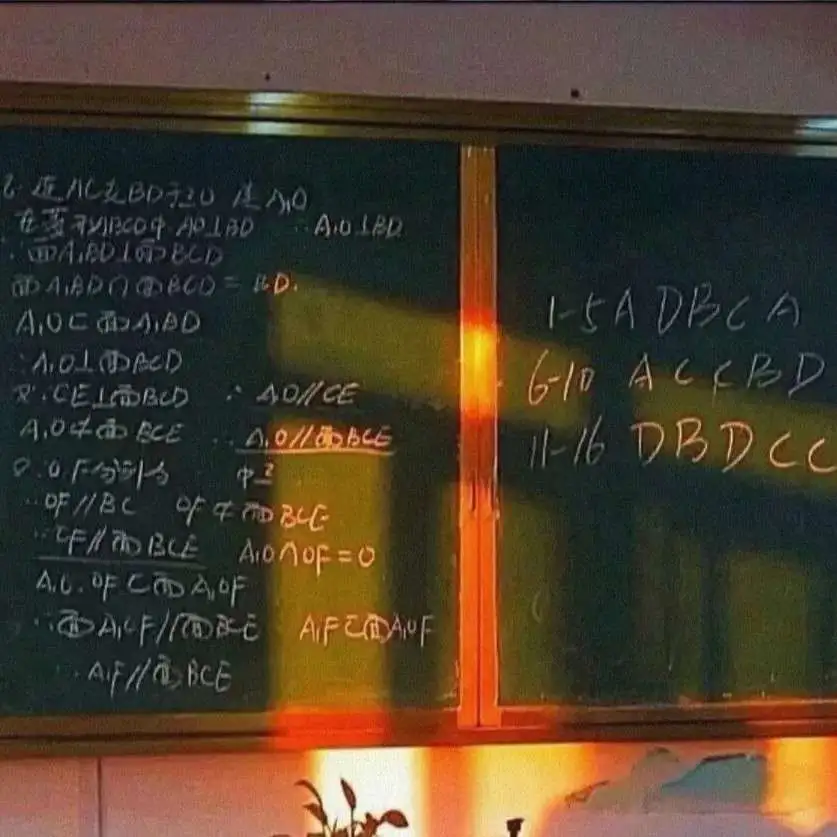 连AC交BD于O 连A₁O
在菱形ABCD中 AO⊥BD ∴A₁O⊥BD
∵面A₁BD⊥面BCD
面A₁BD∩面BCD=BD.
A₁O⊂面A₁BD
∴A₁O⊥面BCD
又∵CE⊥面BCD ∴A₁O//CE
A₁O⊄面BCE ∴A₁O//面BCE
又∵O.F分别为 中点
∴OF//BC OF⊄面BCE
∴OF//面BCE A₁O∩OF=O
A₁O.OF⊂面A₁OF
∴面A₁OF//面BCE A₁F⊂面A₁OF
∴A₁F//面BCE
1-5 A D B C A
6-10 A C C B D
11-16 D B D C C